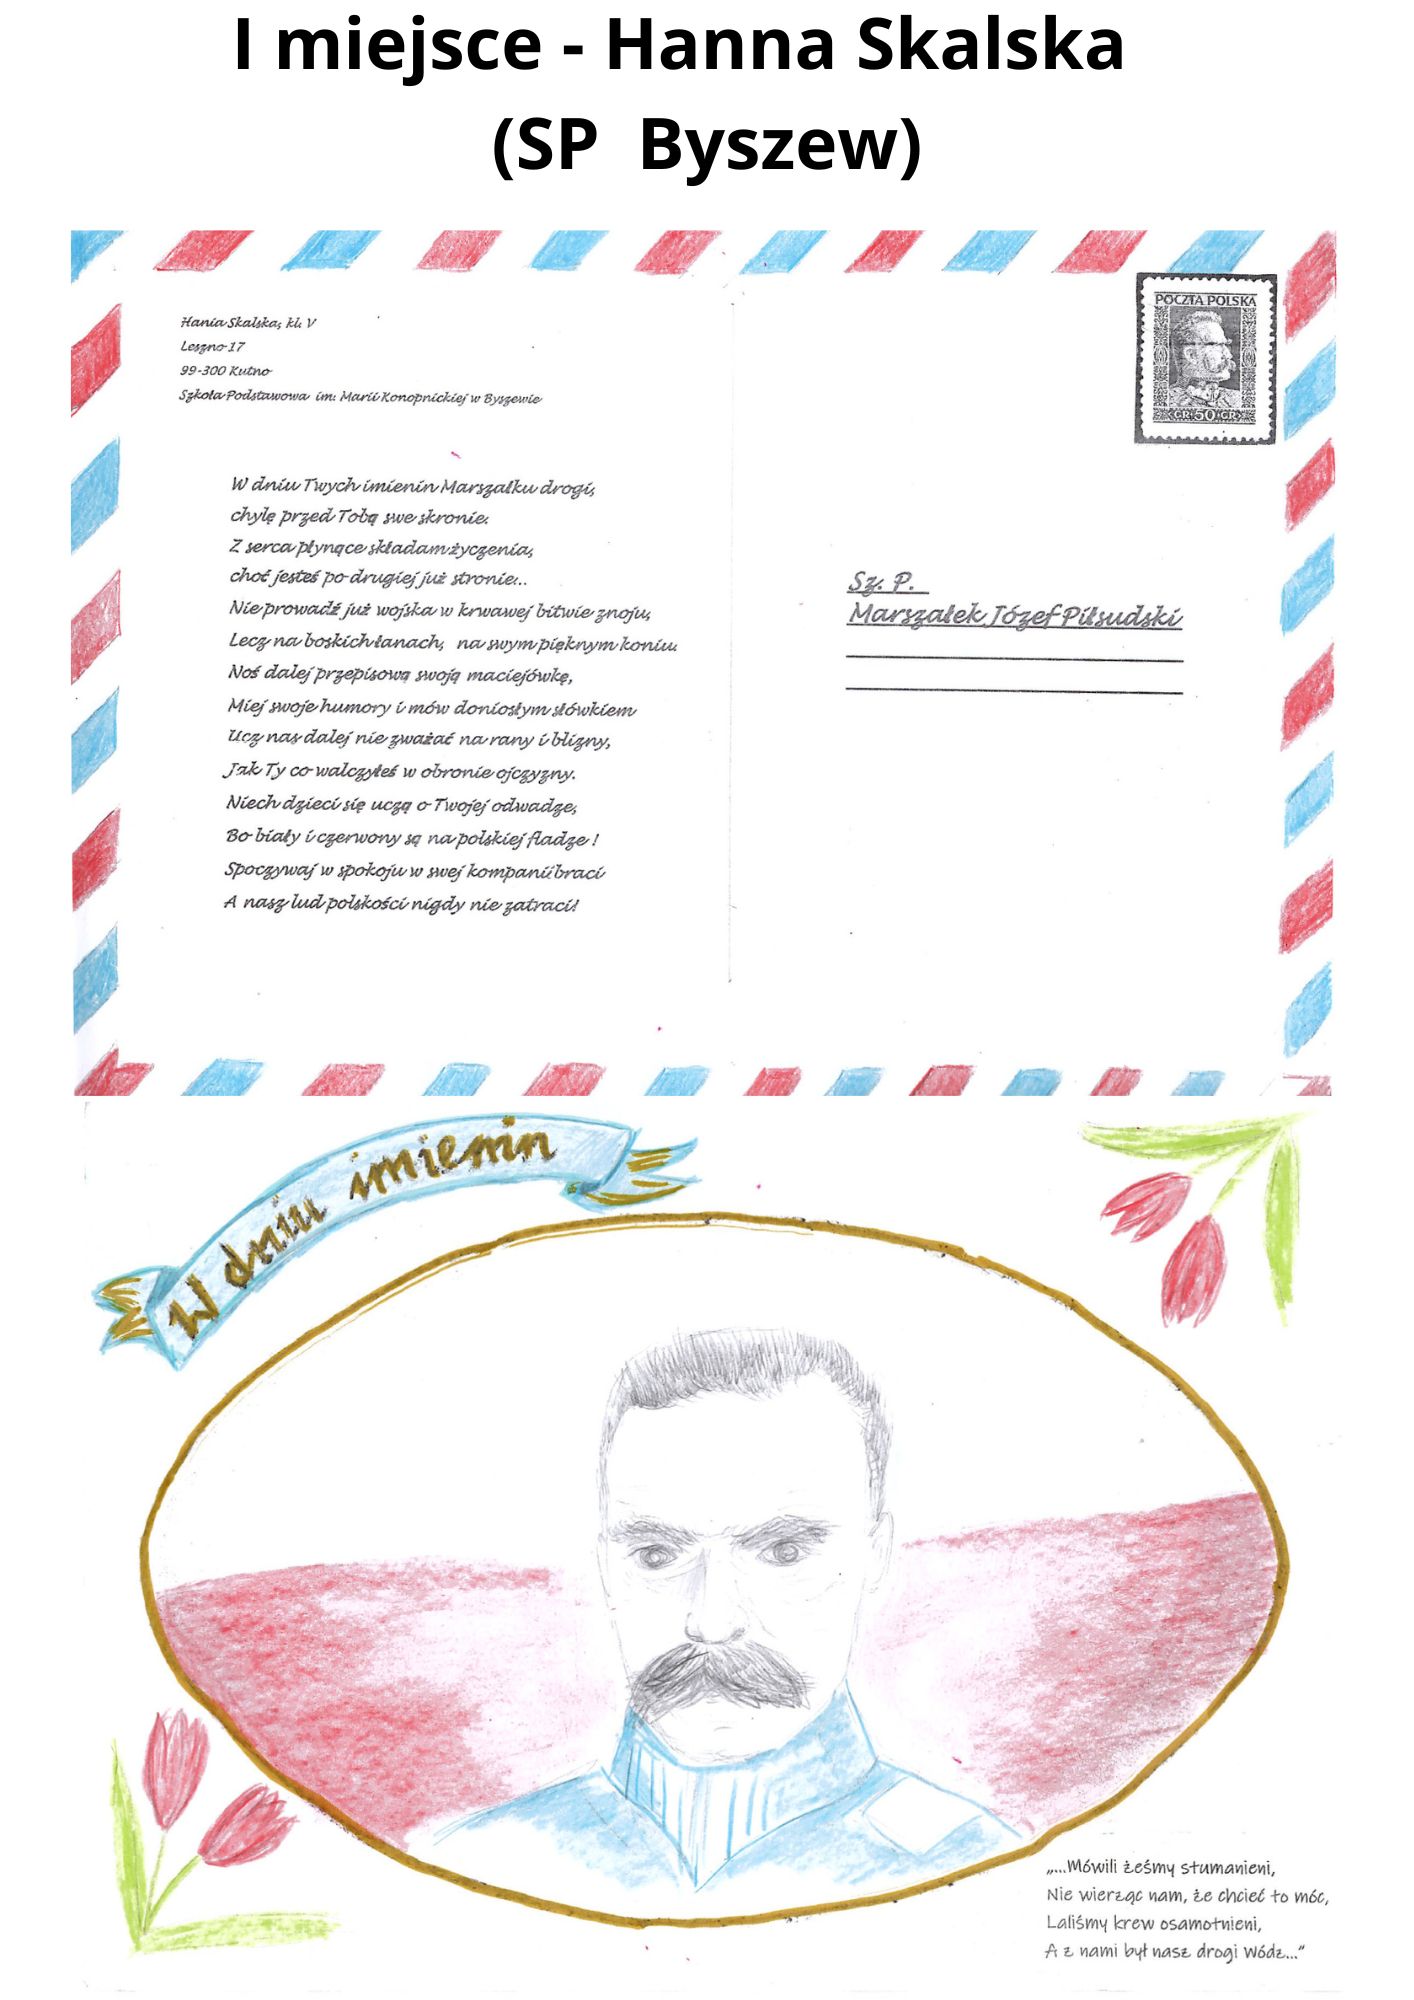 I miejsce - Hanna Skalska
(SP Byszew)
Hania Skalska, kl. V
Leszno 17
99-300 Kutno
Szkoła Podstawowa im. Marii Konopnickiej w Byszewie
POCZTA POLSKA
GR 50 GR
W dniu Twych imienin Marszałku drogi,
chylę przed Tobą swe skronie.
Z serca płynące składam życzenia,
choć jesteś po drugiej już stronie...
Nie prowadź już wojska w krwawej bitwie znoju,
Lecz na boskich łanach, na swym pięknym koniu.
Noś dalej przepisową swoją maciejówkę,
Miej swoje humory i mów doniosłym słówkiem
Ucz nas dalej nie zważać na rany i blizny,
Jak Ty co walczyłeś w obronie ojczyzny.
Niech dzieci się uczą o Twojej odwadze,
Bo biały i czerwony są na polskiej fladze !
Spoczywaj w spokoju w swej kompanii braci
A nasz lud polskości nigdy nie zatraci!
Sz. P.
Marszałek Józef Piłsudski
W dniu imienin
„...Mówili żeśmy stumanieni,
Nie wierząc nam, że chcieć to móc,
Laliśmy krew osamotnieni,
A z nami był nasz drogi Wódz..."